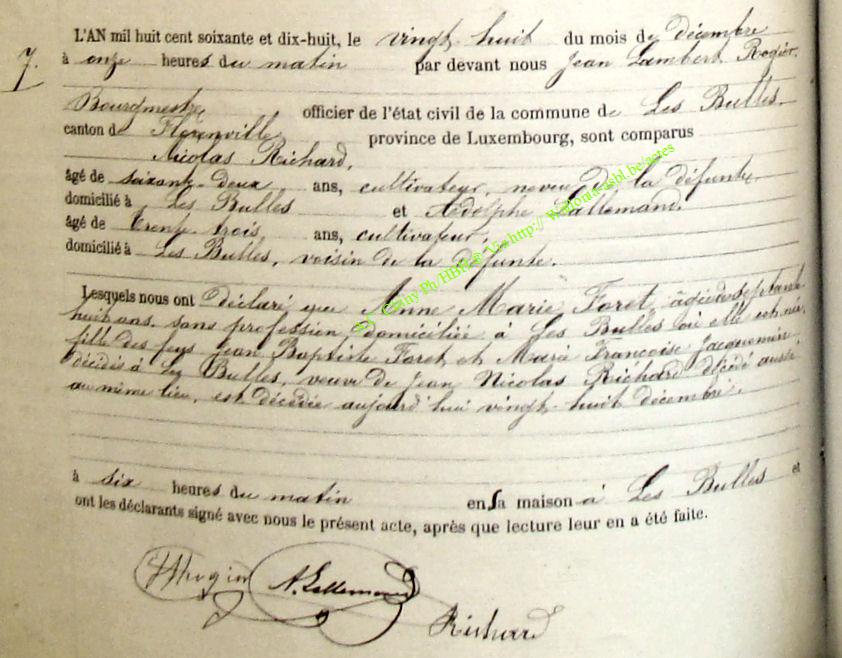 L'AN mil huit cent soixante et dix-huit, le vingt-huit du mois de décembre
7. à onze heures du matin par devant nous Jean Lambert Rogier,
Bourgmestre officier de l'état civil de la commune de Les Bulles
canton de Florenville province de Luxembourg, sont comparus
Nicolas Richard,
âgé de soixante-deux ans, cultivateur, neveu de la défunte
domicilié à Les Bulles et Adolphe Lallemand,
âgé de trente trois ans, cultivateur,
domicilié à Les Bulles, voisin de la défunte.
Lesquels nous ont déclaré que Anne Marie Foret, âgée de septante
huit ans, sans profession, domiciliée à Les Bulles où elle est née,
fille des feus Jean Baptiste Foret et Marie Françoise Jacquemin
décédés à Les Bulles, veuve de Jean Nicolas Richard décédé aussi
au même lieu, est décédée aujourd'hui vingt-huit décembre.
à six heures du matin en sa maison à Les Bulles et
ont les déclarants signé avec nous le présent acte, après que lecture leur en a été faite.
A. Lallemand
Richard